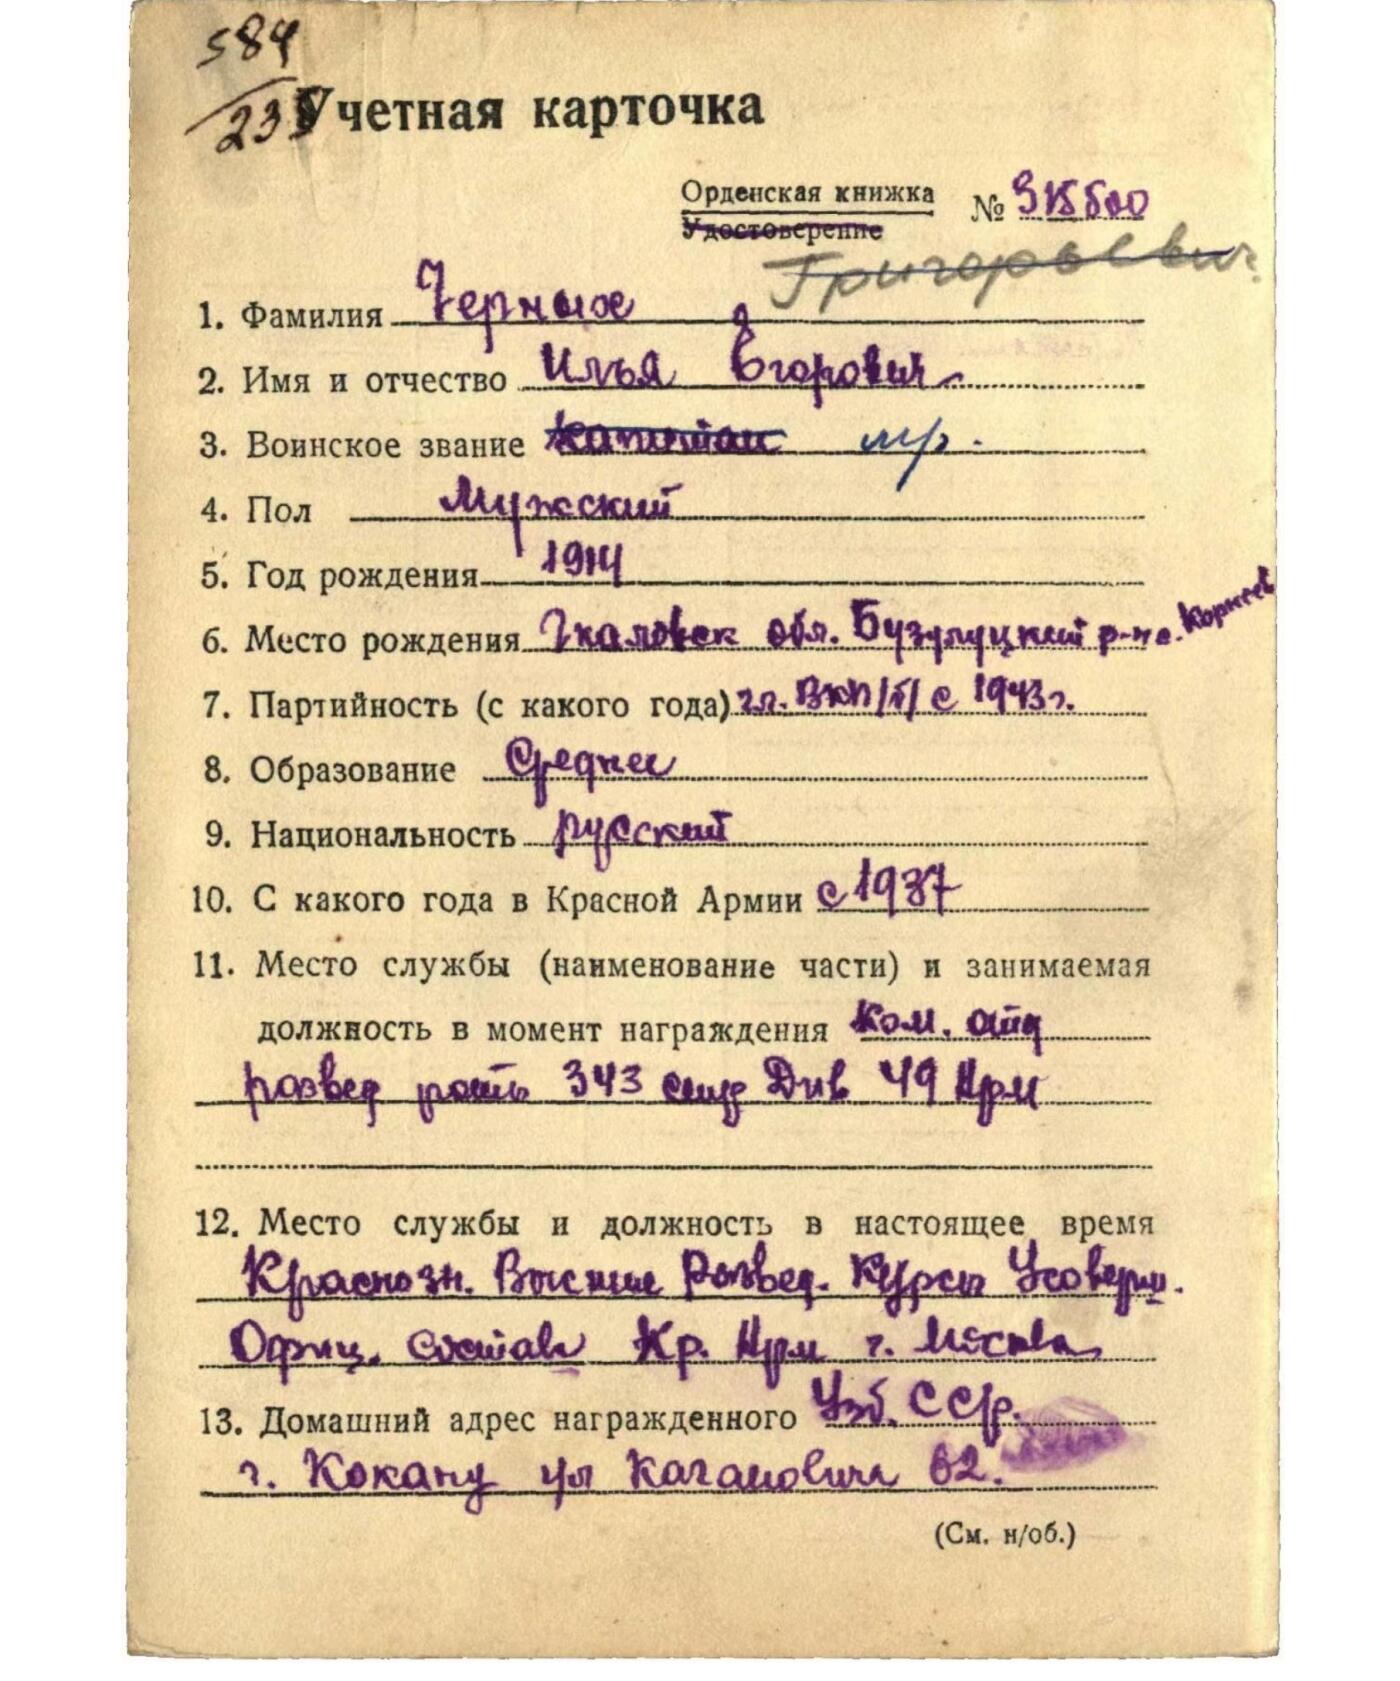 584
235
Учетная карточка
Орденская книжка № 315500
Удостоверение
Григорьевич
1. Фамилия Черных
2. Имя и отчество Илья Егорович
3. Воинское звание капитан м-р.
4. Пол Мужский
5. Год рождения 1914
6. Место рождения Чкаловск обл. Бузулуцкий р-н с. Корнеев
7. Партийность (с какого года) чл. ВКП/б/ с 1943 г.
8. Образование Среднее
9. Национальность русский
10. С какого года в Красной Армии с 1937
11. Место службы (наименование части) и занимаемая
должность в момент награждения Ком. отд
развед роты 343 стр Див 49 Арм
12. Место службы и должность в настоящее время
Краснозн. Высшие Развед. Курсы Усоверш.
Офиц. состава Кр. Арм г. Москва
13. Домашний адрес награжденного Узб. ССР.
г. Коканд ул Кагановича 62.
(См. н/об.)